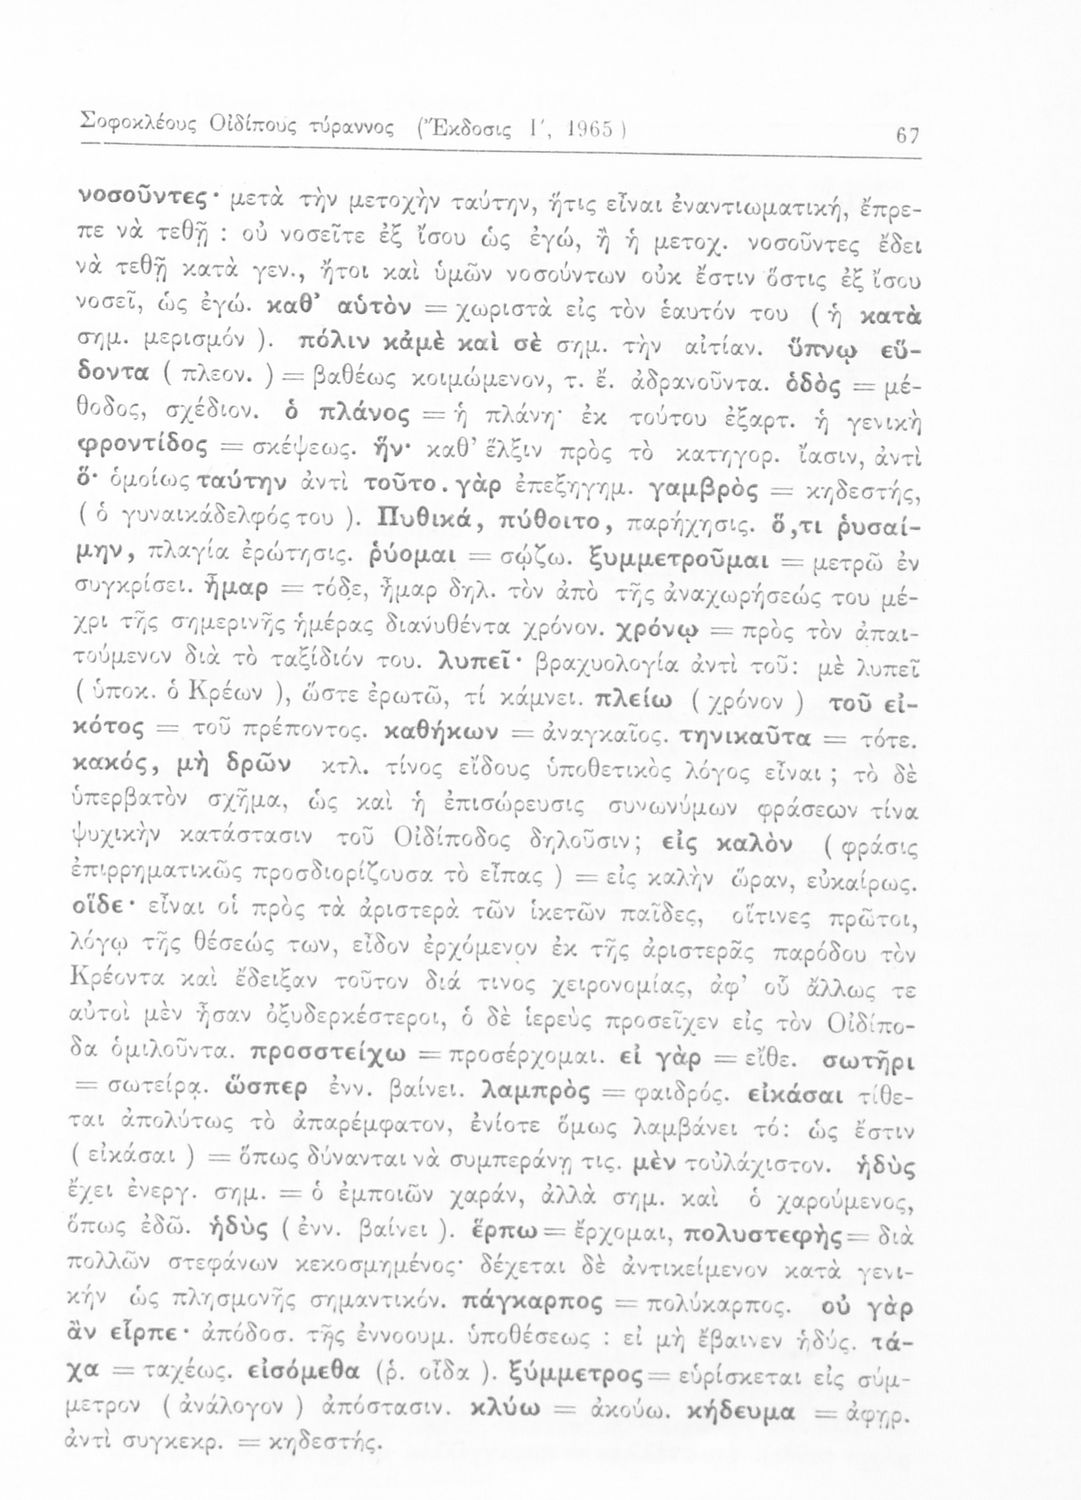 Σοφοκλέους Οἰδίπους τύραννος (Ἔκδοσις Ι΄, 1965) 67
νοσοῦντες· μετὰ τὴν μετοχὴν ταύτην, ἥτις εἶναι ἐναντιωματική, ἔπρε-
πε νὰ τεθῇ : οὐ νοσεῖτε ἐξ ἴσου ὡς ἐγώ, ἢ ἡ μετοχ. νοσοῦντες ἔδει
νὰ τεθῇ κατὰ γεν., ἤτοι καὶ ὑμῶν νοσούντων οὐκ ἔστιν ὅστις ἐξ ἴσου
νοσεῖ, ὡς ἐγώ. καθ’ αὑτὸν = χωριστὰ εἰς τὸν ἑαυτόν του ( ἡ κατὰ
σημ. μερισμόν ). πόλιν κἀμὲ καὶ σὲ σημ. τὴν αἰτίαν. ὕπνῳ εὕ-
δοντα ( πλεον. ) = βαθέως κοιμώμενον, τ. ἔ. ἀδρανοῦντα. ὁδὸς = μέ-
θοδος, σχέδιον. ὁ πλάνος = ἡ πλάνη· ἐκ τούτου ἐξαρτ. ἡ γενικὴ
φροντίδος = σκέψεως. ἥν· καθ’ ἕλξιν πρὸς τὸ κατηγορ. ἴασιν, ἀντὶ
ὅ· ὁμοίως ταύτην ἀντὶ τοῦτο. γὰρ ἐπεξηγημ. γαμβρὸς = κηδεστής,
( ὁ γυναικάδελφός του ). Πυθικά, πύθοιτο, παρήχησις. ὅ,τι ῥυσαί-
μην, πλαγία ἐρώτησις. ῥύομαι = σῴζω. ξυμμετροῦμαι = μετρῶ ἐν
συγκρίσει. ἦμαρ = τόδε, ἦμαρ δηλ. τὸν ἀπὸ τῆς ἀναχωρήσεώς του μέ-
χρι τῆς σημερινῆς ἡμέρας διανυθέντα χρόνον. χρόνῳ = πρὸς τὸν ἀπαι-
τούμενον διὰ τὸ ταξίδιόν του. λυπεῖ· βραχυολογία ἀντὶ τοῦ: μὲ λυπεῖ
( ὑποκ. ὁ Κρέων ), ὥστε ἐρωτῶ, τί κάμνει. πλείω ( χρόνον ) τοῦ εἰ-
κότος = τοῦ πρέποντος. καθήκων = ἀναγκαῖος. τηνικαῦτα = τότε.
κακός, μὴ δρῶν κτλ. τίνος εἴδους ὑποθετικὸς λόγος εἶναι ; τὸ δὲ
ὑπερβατὸν σχῆμα, ὡς καὶ ἡ ἐπισώρευσις συνωνύμων φράσεων τίνα
ψυχικὴν κατάστασιν τοῦ Οἰδίποδος δηλοῦσιν; εἰς καλὸν ( φράσις
ἐπιρρηματικῶς προσδιορίζουσα τὸ εἶπας ) = εἰς καλὴν ὥραν, εὐκαίρως.
οἵδε· εἶναι οἱ πρὸς τὰ ἀριστερὰ τῶν ἱκετῶν παῖδες, οἵτινες πρῶτοι,
λόγῳ τῆς θέσεώς των, εἶδον ἐρχόμενον ἐκ τῆς ἀριστερᾶς παρόδου τὸν
Κρέοντα καὶ ἔδειξαν τοῦτον διά τινος χειρονομίας, ἀφ’ οὗ ἄλλως τε
αὐτοὶ μὲν ἦσαν ὀξυδερκέστεροι, ὁ δὲ ἱερεὺς προσεῖχεν εἰς τὸν Οἰδίπο-
δα ὁμιλοῦντα. προσστείχω = προσέρχομαι. εἰ γὰρ = εἴθε. σωτῆρι
= σωτείρᾳ. ὥσπερ ἐνν. βαίνει. λαμπρὸς = φαιδρός. εἰκάσαι τίθε-
ται ἀπολύτως τὸ ἀπαρέμφατον, ἐνίοτε ὅμως λαμβάνει τό: ὡς ἔστιν
( εἰκάσαι ) = ὅπως δύναται νὰ συμπεράνῃ τις. μὲν τοὐλάχιστον. ἡδὺς
ἔχει ἐνεργ. σημ. = ὁ ἐμποιῶν χαράν, ἀλλὰ σημ. καὶ ὁ χαρούμενος,
ὅπως ἐδῶ. ἡδὺς ( ἐνν. βαίνει ). ἕρπω = ἔρχομαι, πολυστεφὴς = διὰ
πολλῶν στεφάνων κεκοσμημένος· δέχεται δὲ ἀντικείμενον κατὰ γενι-
κὴν ὡς πλησμονῆς σημαντικόν. πάγκαρπος = πολύκαρπος. οὐ γὰρ
ἂν εἷρπε· ἀπόδοσ. τῆς ἐννοουμ. ὑποθέσεως : εἰ μὴ ἔβαινεν ἡδύς. τά-
χα = ταχέως. εἰσόμεθα (ῥ. οἶδα ). ξύμμετρος = εὑρίσκεται εἰς σύμ-
μετρον ( ἀνάλογον ) ἀπόστασιν. κλύω = ἀκούω. κήδευμα = ἀφῃρ.
ἀντὶ συγκεκρ. = κηδεστής.